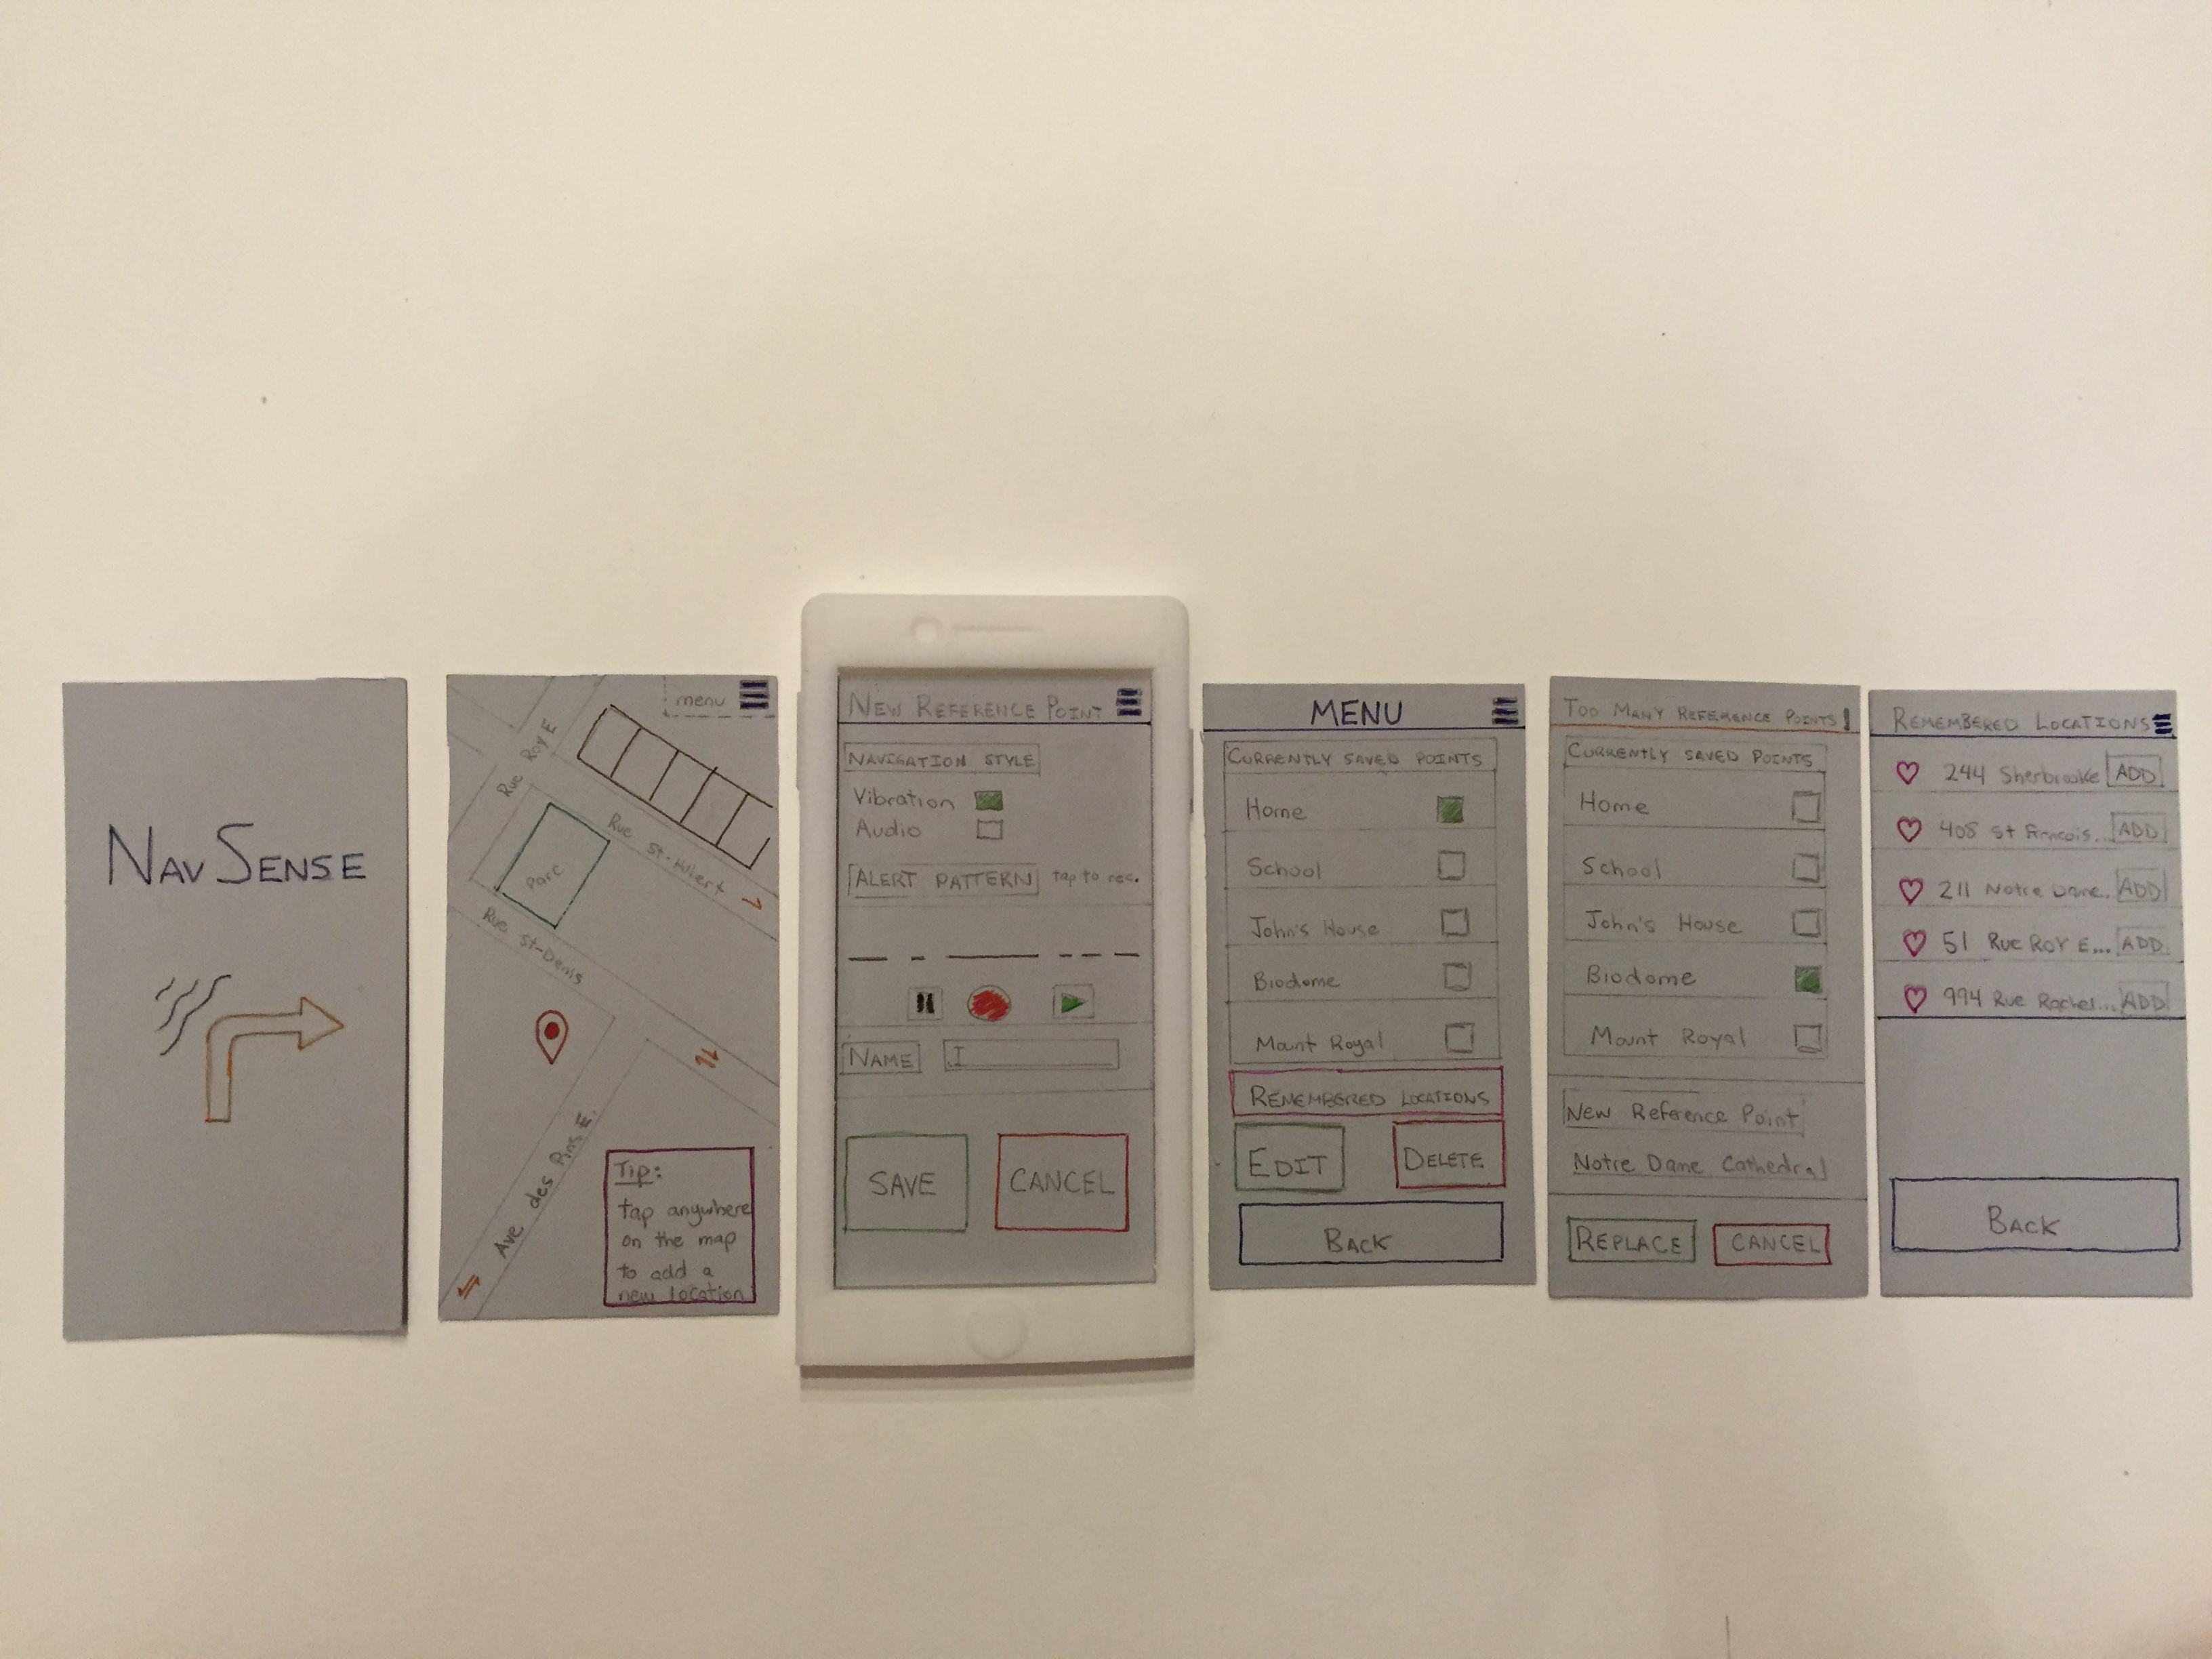 NAV SENSE
menu
Rue Roy E
Rue St-Albert
Parc
Rue St-Denis
Ave des Pins E.
Tip:
tap anywhere
on the map
to add a
new location
NEW REFERENCE POINT
NAVIGATION STYLE
Vibration
Audio
ALERT PATTERN tap to rec.
NAME
SAVE CANCEL
MENU
CURRENTLY SAVED POINTS
Home
School
John's House
Biodome
Mount Royal
REMEMBERED LOCATIONS
EDIT DELETE
BACK
TOO MANY REFERENCE POINTS!
CURRENTLY SAVED POINTS
Home
School
John's House
Biodome
Mount Royal
New Reference Point
Notre Dame Cathedral
REPLACE CANCEL
REMEMBERED LOCATIONS
244 Sherbrooke ADD
408 St Francois... ADD
211 Notre Dame.. ADD
51 Rue ROY E... ADD
994 Rue Rachel... ADD
BACK